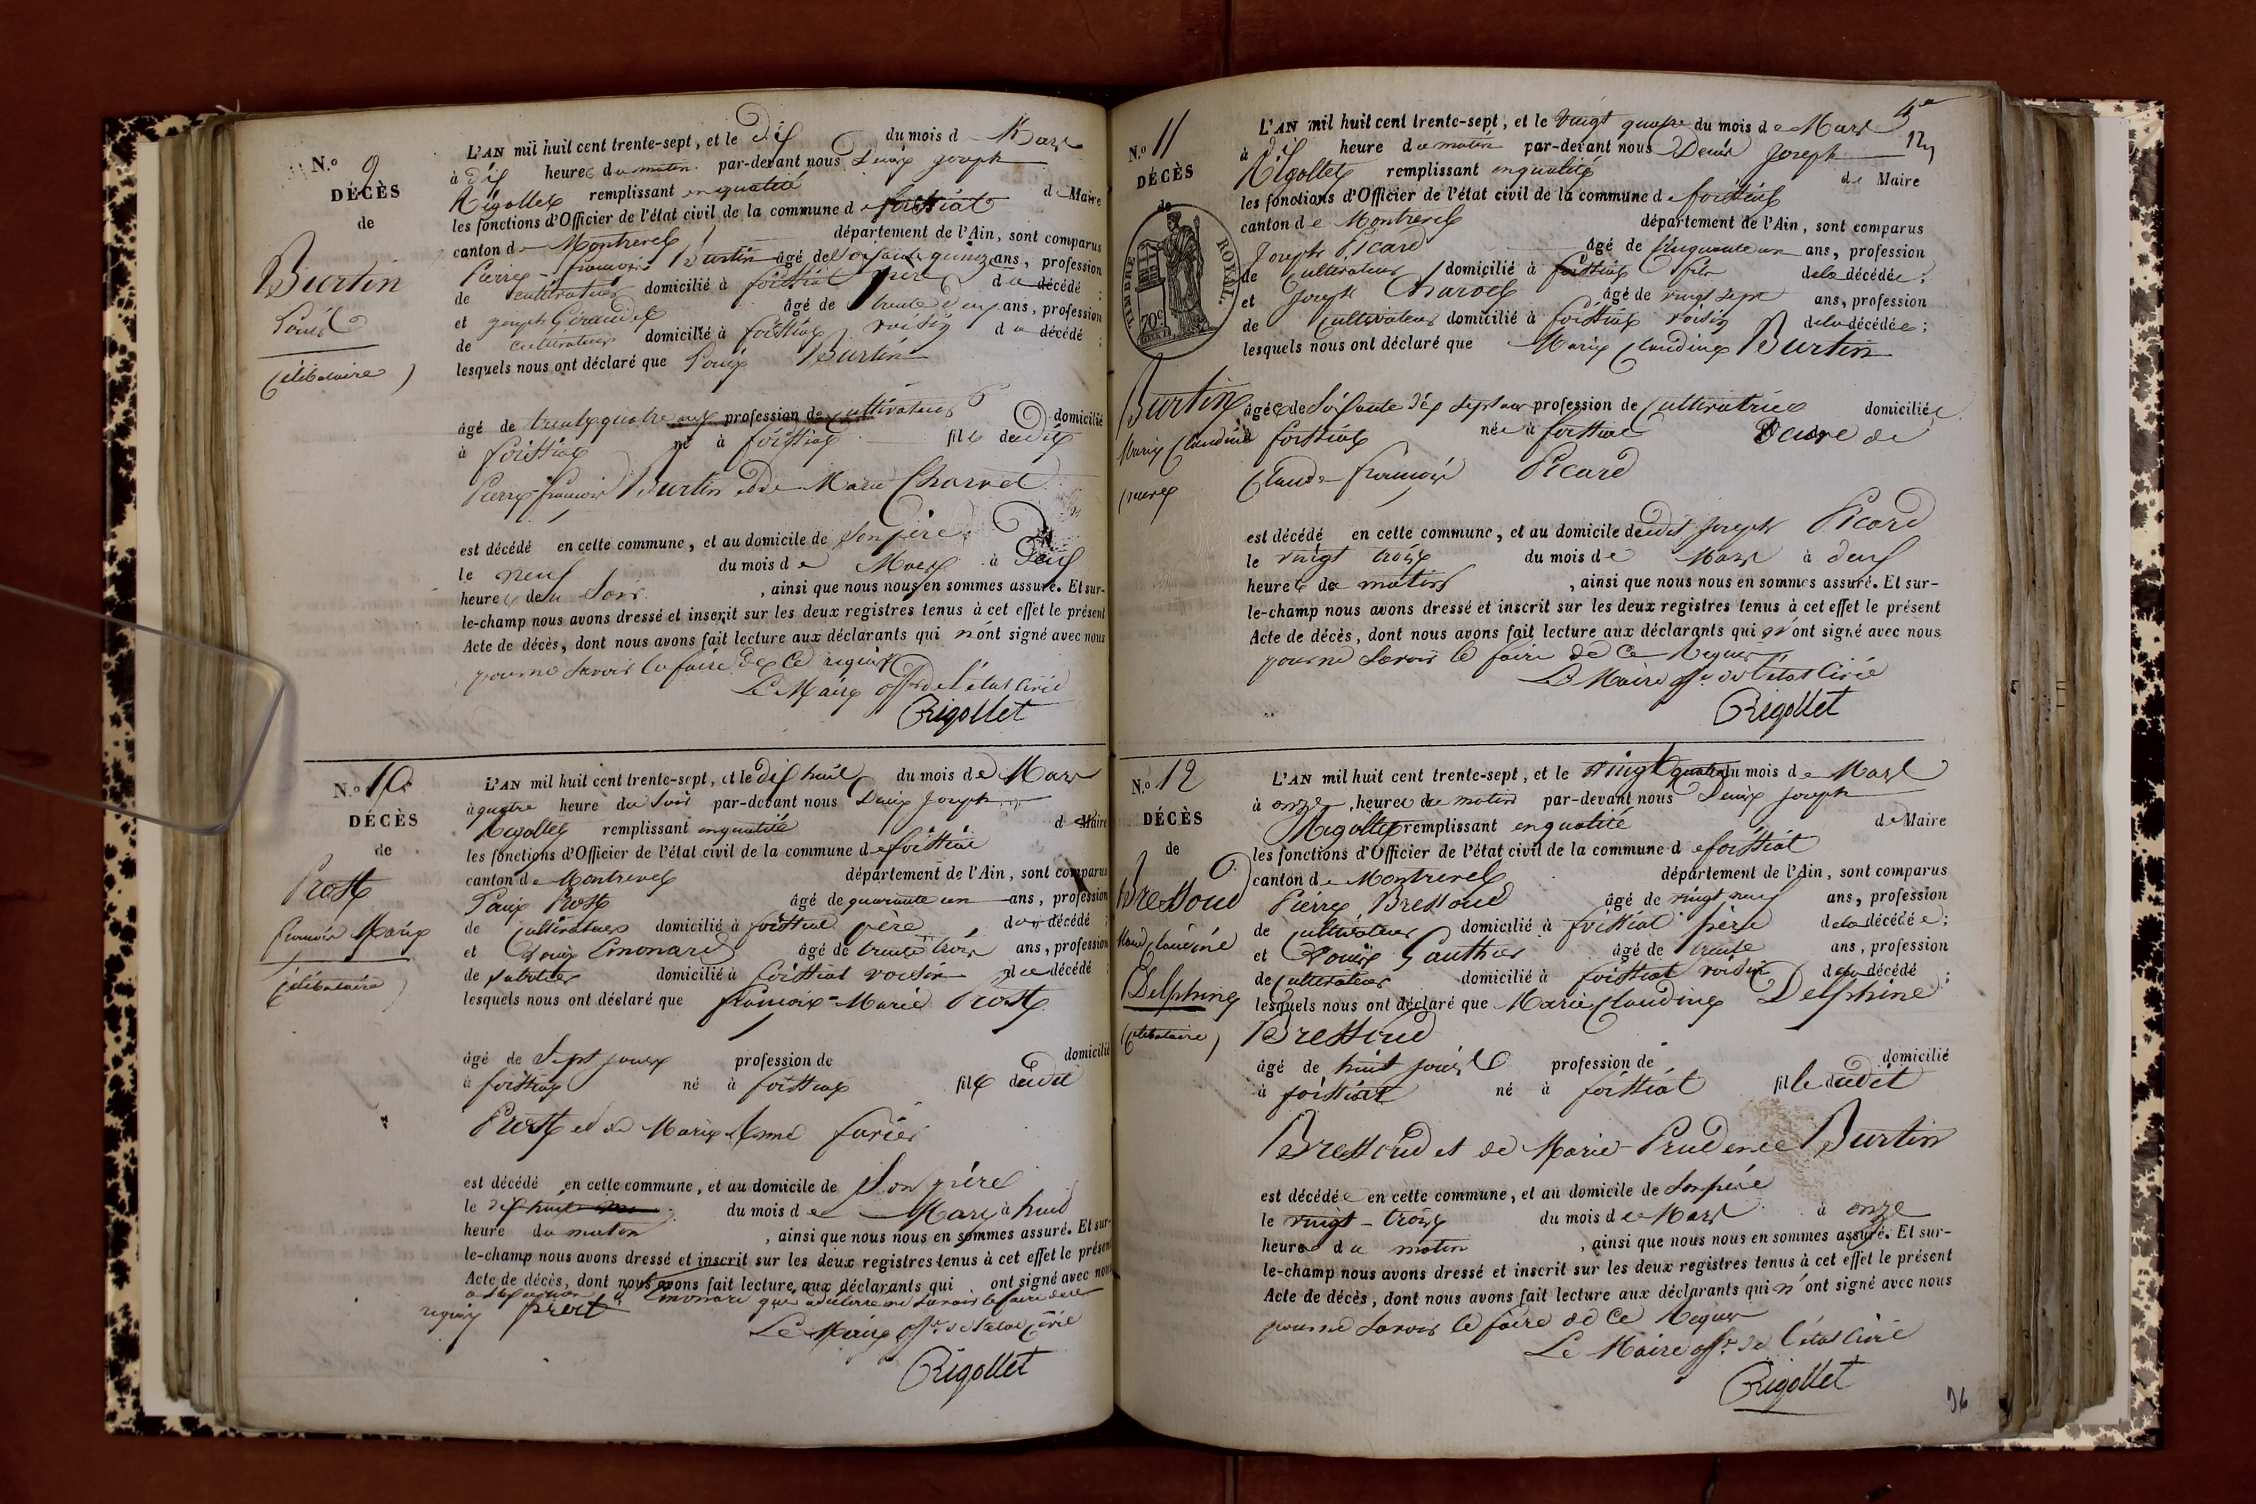 N.º 9
DÉCÈS
de
Burtin
Louis
Célibataire
L'AN mil huit cent trente-sept, et le Dix du mois de Mars
à dix heures du matin par-devant nous Denis Joseph
Rigollet remplissant en qualité de Maire
les fonctions d'Officier de l'état civil de la commune de foissiat
canton de Montrevel département de l'Ain, sont comparus
Pierre-françois Burtin âgé de soixante quinze ans, profession
de cultivateur domicilié à foissiat père du décédé ;
et joseph Giraudet âgé de trente deux ans, profession
de cultivateur domicilié à foissiat voisin du décédé ;
lesquels nous ont déclaré que Louis Burtin
âgé de trente quatre ans profession de cultivateur domicilié
à foissiat né à foissiat fils dudit
Pierre-françois Burtin et de Marie Charvet
est décédé en cette commune, et au domicile de son père
le neuf du mois de Mars à Deux
heures du soir, ainsi que nous nous en sommes assuré. Et sur-
le-champ nous avons dressé et inscrit sur les deux registres tenus à cet effet le présent
Acte de décès, dont nous avons fait lecture aux déclarants qui n'ont signé avec nous
pour ne savoir le faire de ce requis
Le Maire offr de l'état civil
Rigollet
N.º 10
DÉCÈS
de
Prost
françois Marie
Célibataire
L'AN mil huit cent trente-sept, et le dix huit du mois de Mars
à quatre heure du soir par-devant nous Denis Joseph
Rigollet remplissant en qualité de Maire
les fonctions d'Officier de l'état civil de la commune de foissiat
canton de Montrevel département de l'Ain, sont comparus
Prost âgé de quarante un ans, profession
de cultivateur domicilié à foissiat père du décédé ;
et Louis Emonard âgé de trente trois ans, profession
de sabotier domicilié à foissiat voisin du décédé ;
lesquels nous ont déclaré que françois-Marie Prost
âgé de sept jours profession de domicilié
à foissiat né à foissiat fils dudit
Prost et de Marie
est décédé en cette commune, et au domicile de son père
le dix huit du mois de Mars à huit
heure du matin, ainsi que nous nous en sommes assuré. Et sur-
le-champ nous avons dressé et inscrit sur les deux registres tenus à cet effet le présent
Acte de décès, dont nous avons fait lecture aux déclarants qui ont signé avec nous
à l'exception d'Emonard qui a déclaré ne savoir le faire de ce
requis prost
Le Maire offr de l'état civil
Rigollet
5e
12
N.º 11
DÉCÈS
de
TIMBRE ROYAL.
70c
Burtin
Marie Claudine
veuve
L'AN mil huit cent trente-sept, et le vingt quatre du mois de Mars
à dix heure du matin par-devant nous Denis Joseph
Rigollet remplissant en qualité de Maire
les fonctions d'Officier de l'état civil de la commune de foissiat
canton de Montrevel département de l'Ain, sont comparus
Joseph Picard âgé de cinquante un ans, profession
de cultivateur domicilié à foissiat fils de la décédée ;
et Joseph Charvet âgé de vingt sept ans, profession
de cultivateur domicilié à foissiat voisin de la décédée ;
lesquels nous ont déclaré que Marie Claudine Burtin
âgée de soixante dix sept ans profession de cultivatrice domiciliée
à foissiat née à foissiat veuve de
Claude françois Picard
est décédé en cette commune, et au domicile dudit Joseph Picard
le vingt trois du mois de Mars à deux
heures du matin, ainsi que nous nous en sommes assuré. Et sur-
le-champ nous avons dressé et inscrit sur les deux registres tenus à cet effet le présent
Acte de décès, dont nous avons fait lecture aux déclarants qui n'ont signé avec nous
pour ne savoir le faire de ce requis
Le Maire offr de l'état civil
Rigollet
N.º 12
DÉCÈS
de
Bressoud
Marie Claudine
Delphine
Célibataire
L'AN mil huit cent trente-sept, et le vingt quatre du mois de Mars
à onze heures du matin par-devant nous Denis Joseph
Rigollet remplissant en qualité de Maire
les fonctions d'Officier de l'état civil de la commune de foissiat
canton de Montrevel département de l'Ain, sont comparus
Pierre Bressoud âgé de vingt neuf ans, profession
de cultivateur domicilié à foissiat père de la décédée ;
et Louis Gauthier âgé de trente ans, profession
de cultivateur domicilié à foissiat voisin de la décédé ;
lesquels nous ont déclaré que Marie Claudine Delphine
Bressoud
âgé de huit jours profession de domicilié
à foissiat né à foissiat fille dudit
Bressoud et de Marie-Prudence Burtin
est décédée en cette commune, et au domicile de son père
le vingt-trois du mois de Mars à onze
heures du matin, ainsi que nous nous en sommes assuré. Et sur-
le-champ nous avons dressé et inscrit sur les deux registres tenus à cet effet le présent
Acte de décès, dont nous avons fait lecture aux déclarants qui n'ont signé avec nous
pour ne savoir le faire de ce requis
Le Maire offr de l'état civil
Rigollet
96